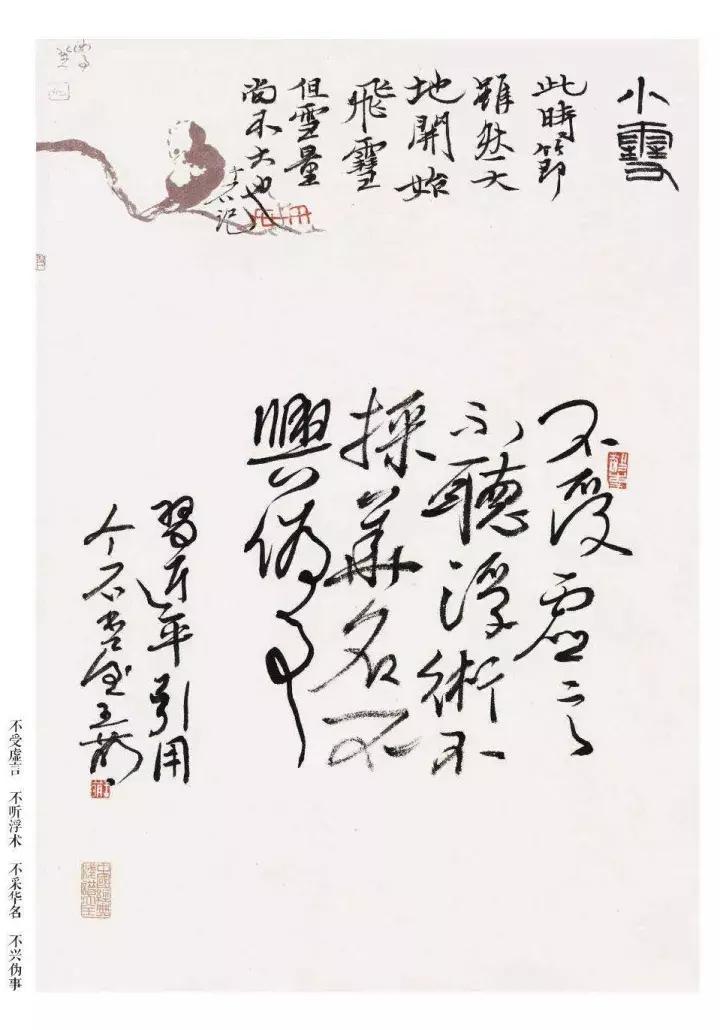 小雪
此時節
雖然天
地開始
飛雪
但雪量
尚不大也
不受虛言
不聽浮術不
採華名不
興偽事
習近平引用
个石
不受虚言 不听浮术 不采华名 不兴伪事